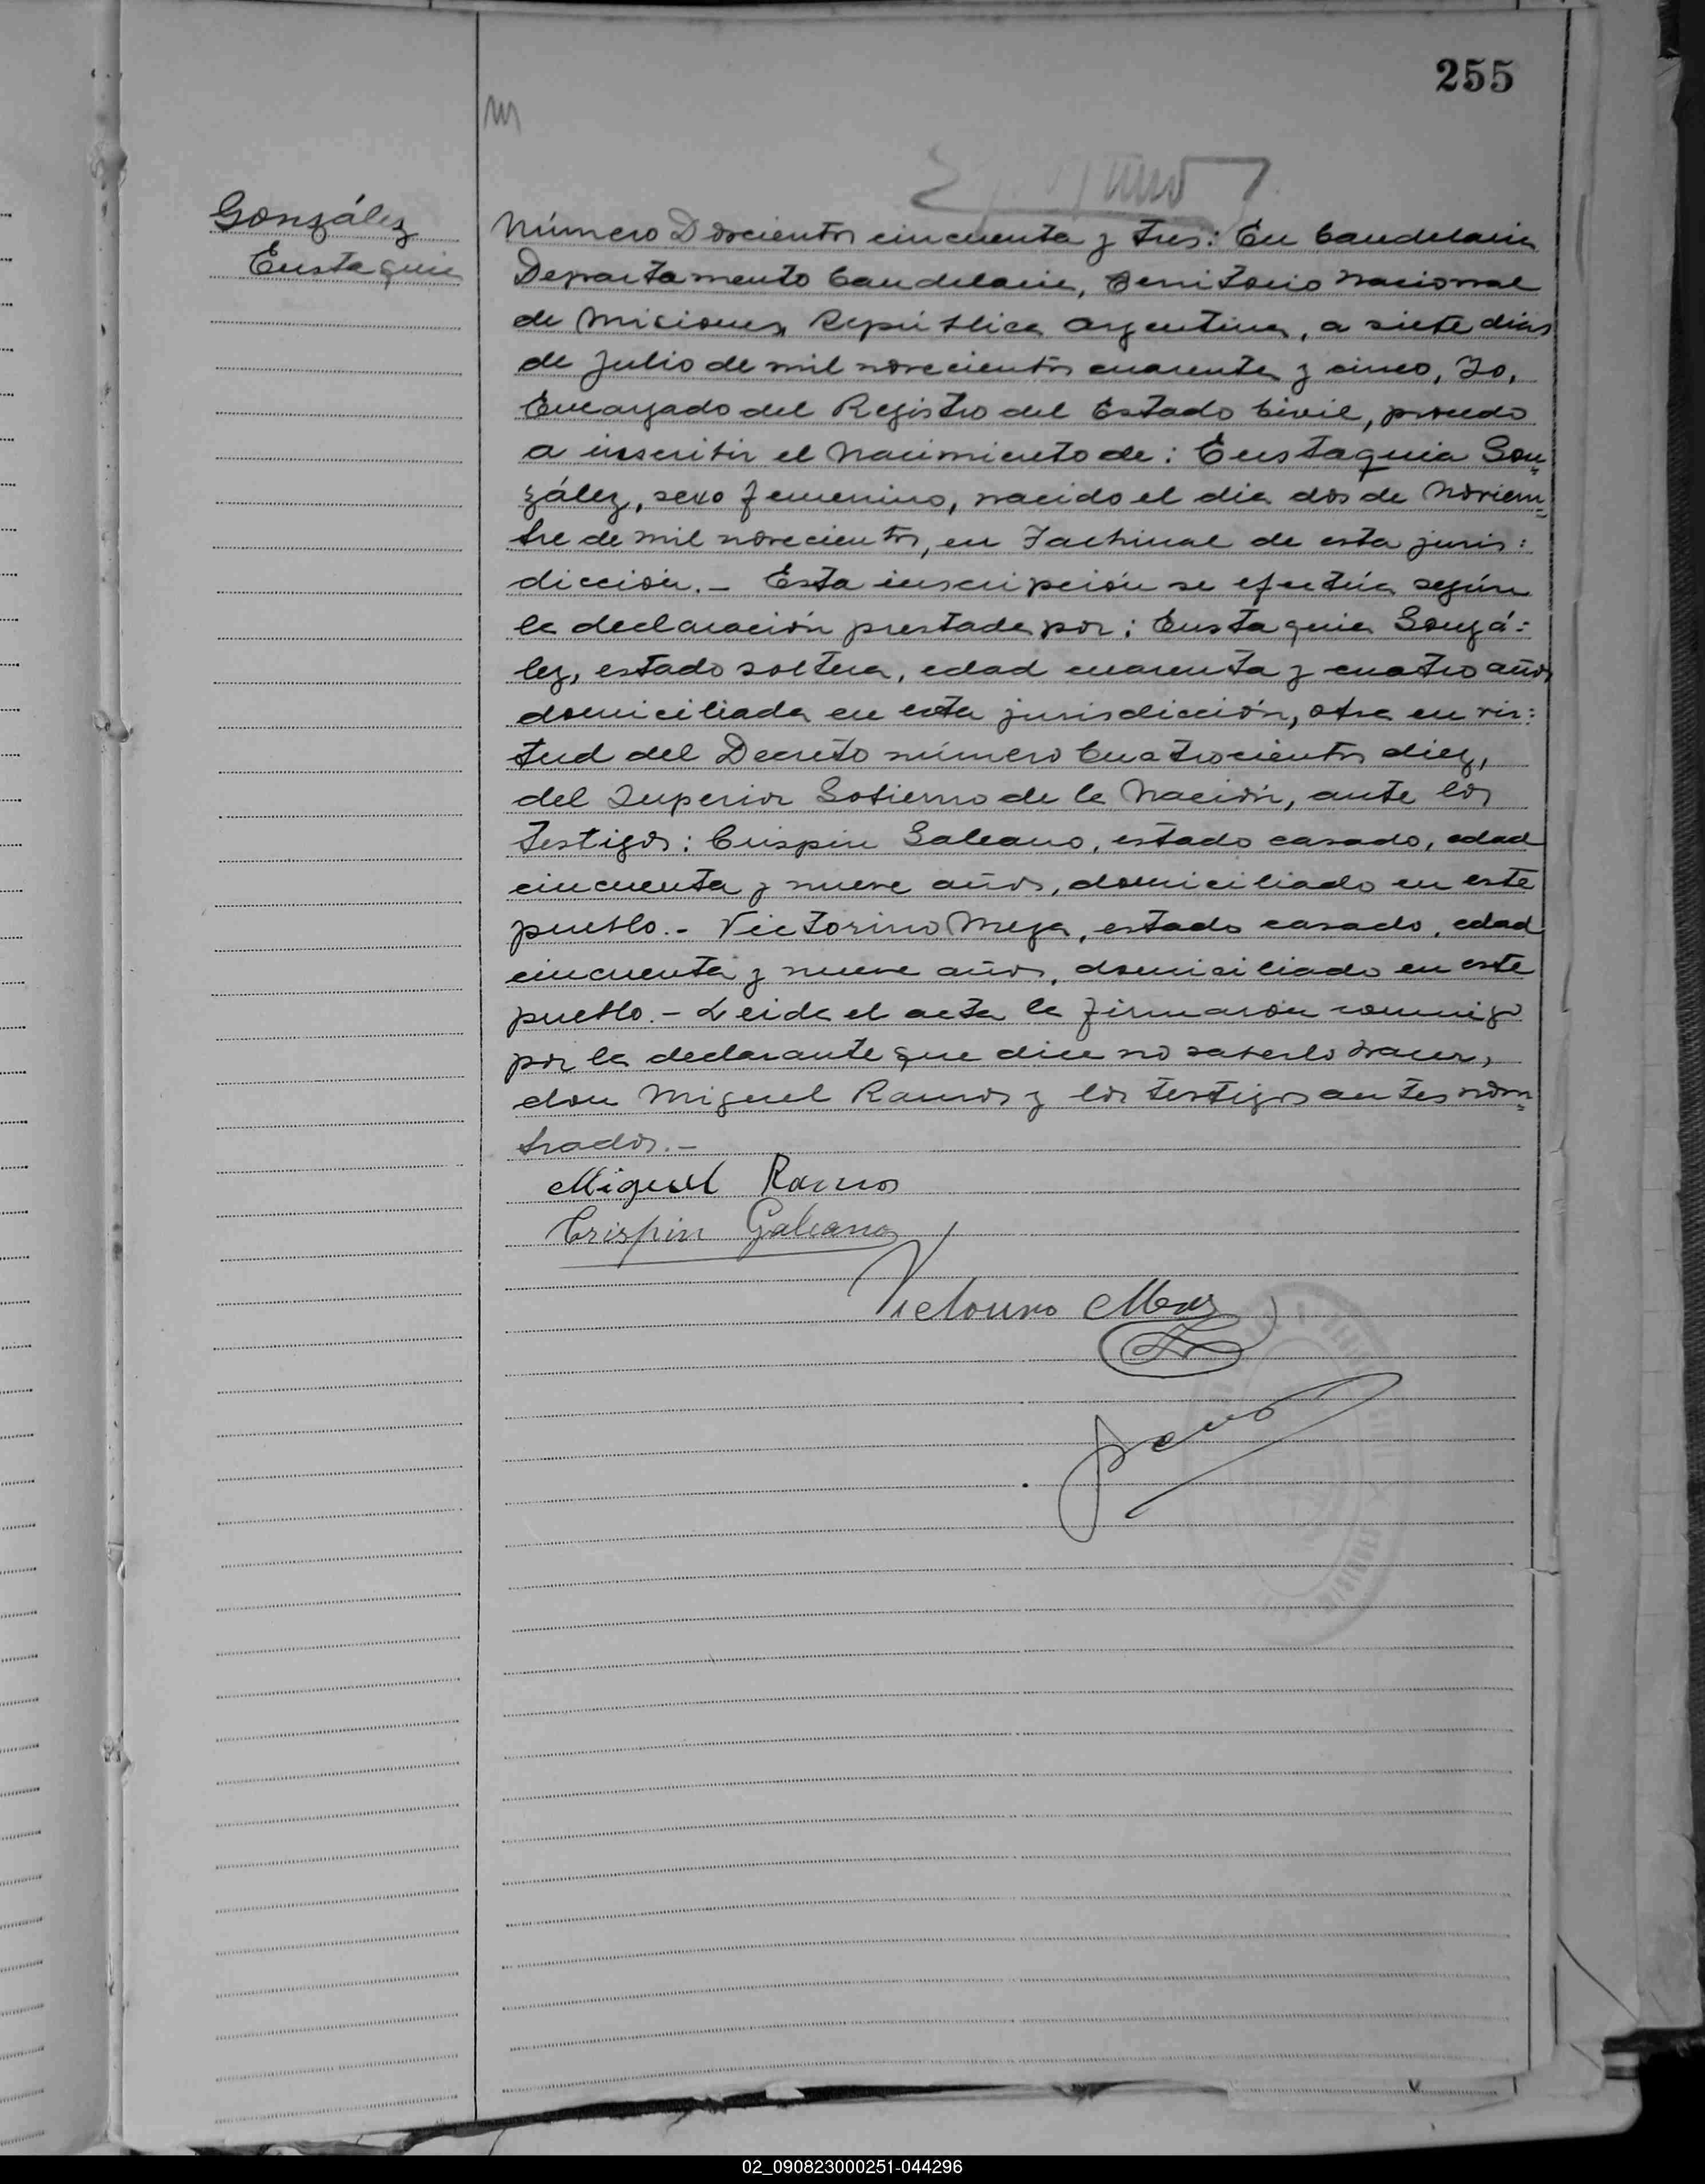 255
González
Eustaquia
Número Doscientos cincuenta y tres: En Candelaria
Departamento Candelaria, Territorio Nacional
de Misiones República Argentina, a siete dias
de Julio de mil novecientos cuarenta y cinco, Yo,
Encargado del Registro del Estado Civil, procedo
a inscribir el Nacimiento de: Eustaquia Gon=
zález, sexo femenino, nacido el dia dos de Noviem=
bre de mil novecientos, en Fachinal de esta juris=
dicción.- Esta inscripción se efectúa según
la declaración prestada por: Eustaquia Gonzá=
lez, estado soltera, edad cuarenta y cuatro años
domiciliada en esta jurisdicción, obra en vir=
tud del Decreto número Cuatrocientos diez,
del Superior Gobierno de la Nación, ante los
testigos: Crispin Galeano, estado casado, edad
cincuenta y nueve años, domiciliado en este
pueblo.- Victorino Meza, estado casado, edad
cincuenta y nueve años, domiciliado en este
pueblo.- Leida el acta la firmaron conmigo
por la declarante que dice no saberlo hacer,
don Miguel Ramos y los testigos antes nom=
brados.-
Miguel Ramos
Crispin Galeano
Victorino Meza
02_090823000251-044296